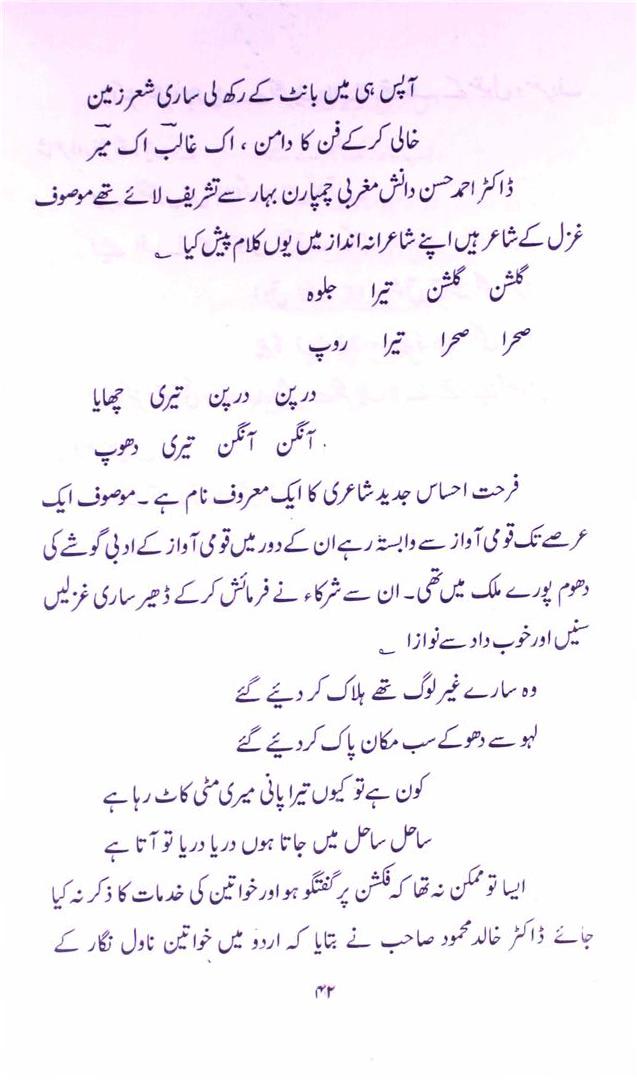 آپس ہی میں بانٹ کے رکھ لی ساری شعر زمین
خالی کرکے فن کا دامن ، اک غالبؔ اک میرؔ
ڈاکٹر احمد حسن دانش مغربی چمپارن بہار سے تشریف لائے تھے موصوف
غزل کے شاعر ہیں اپنے شاعرانہ انداز میں یوں کلام پیش کیا ؎
گلشن گلشن تیرا جلوہ
صحرا صحرا تیرا روپ
درپن درپن تیری چھایا
آنگن آنگن تیری دھوپ
فرحت احساس جدید شاعری کا ایک معروف نام ہے ۔ موصوف ایک
عرصے تک قومی آواز سے وابستہ رہے ان کے دور میں قومی آواز کے ادبی گوشے کی
دھوم پورے ملک میں تھی۔ ان سے شرکاء نے فرمائش کرکے ڈھیر ساری غزلیں
سنیں اور خوب داد سے نوازا ؎
وہ سارے غیر لوگ تھے ہلاک کر دیئے گئے
لہو سے دھو کے سب مکان پاک کردیئے گئے
کون ہے تو کیوں تیرا پانی میری مٹی کاٹ رہا ہے
ساحل ساحل میں جاتا ہوں دریا دریا تو آتا ہے
ایسا تو ممکن نہ تھا کہ فکشن پر گفتگو ہو اور خواتین کی خدمات کا ذکر نہ کیا
جائے ڈاکٹر خالد محمود صاحب نے بتایا کہ اردو میں خواتین ناول نگار کے
۴۲